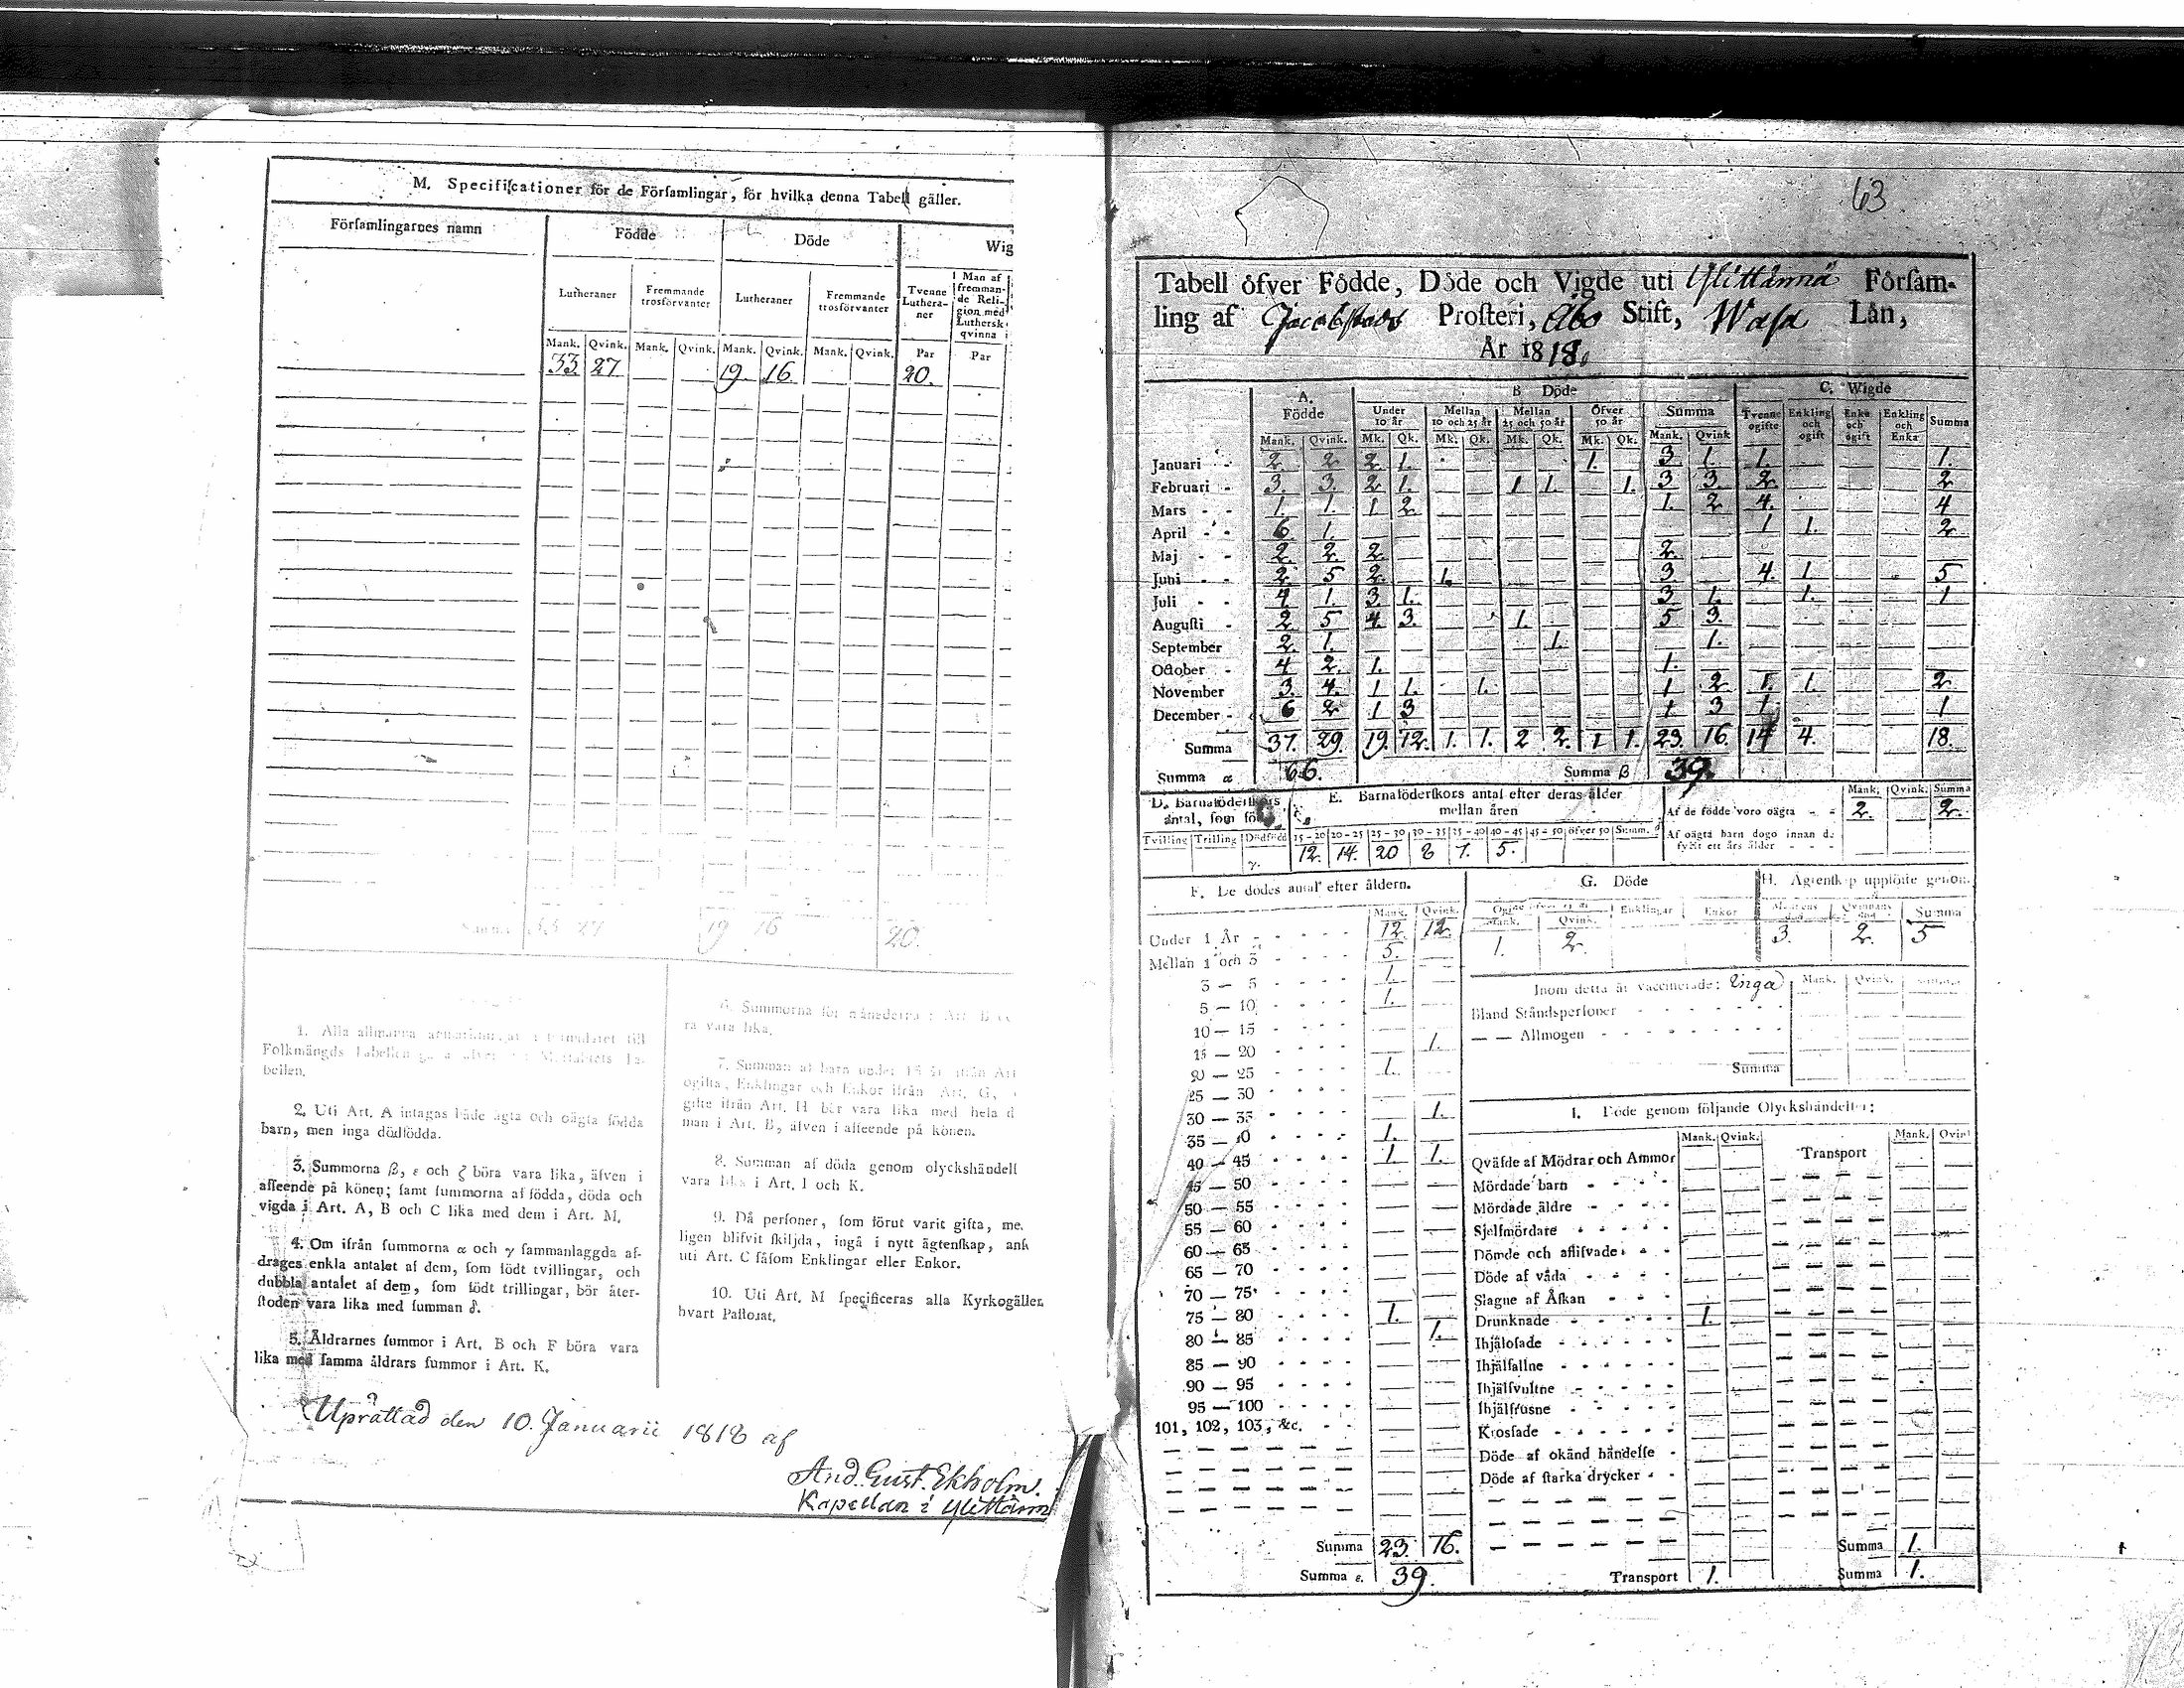 M. Specificationer för de Församlingar, för hvilka denna Tabell gäller.
Församlingarnes namn Födde Döde Wig
Lutheraner Fremmande trosförvanter Lutheraner Fremmande trosförvanter Tvenne Lutheraner 1 Man af fremmande Religion med Luthersk qvinna
Mank. Qvink. Mank. Qvink. Mank. Qvink. Mank. Qvink. Par Par
33 27 19 16 20.
19 16 20.
1. Alla allmänna
Folkmängds Tabellen
bellen.
2. Uti Art. A intagas både ägta och oägta födda
barn, men inga dödfödda.
3. Summorna β, ε och ζ böra vara lika, äfven i
afseende på könen; samt summorna af födda, döda och
vigda i Art. A, B och C lika med dem i Art. M.
4. Om ifrån summorna α och γ sammanlaggda af-
drages enkla antalet af dem, som födt tvillingar, och
dubbla antalet af dem, som födt trillingar, bör åter-
stoden vara lika med summan δ.
5. Åldrarnes summor i Art. B och F böra vara
lika med samma åldrars summor i Art. K.
6. Summorna för månederna i Art. B
ra vara lika.
7. Summan af barn under 15 år ifrån Art
ogifta, Enklingar och Enkor ifrån Art. G,
gifte ifrån Art. H bör vara lika med hela
man i Art. B, äfven i afseende på könen.
8. Summan af döda genom olyckshändel
vara lika i Art. I och K.
9. Då personer, som förut varit gifta,
ligen blifvit skiljda, ingå i nytt ägtenskap,
uti Art. C såsom Enklingar eller Enkor.
10. Uti Art. M specificeras alla Kyrkogäller
hvart Pastorat.
Uprättad den 10. Januarii 1818 af
And. Gust. Ekholm.
Kapellan i Ylittärm
63
Tabell öfver Födde, Döde och Vigde uti Ylittärmä Försam-
ling af Jacobstads Prosteri, Åbo Stift, Wasa Län,
År 1818.
A. Födde B Döde C. Wigde
Under 10 år Mellan 10 och 25 år Mellan 25 och 50 år Öfver 50 år Summa Tvenne ogifte Enkling och ogift Enka och ogift Enkling och Enka Summa
Mank. Qvink. Mk. Qk. Mk. Qk. Mk. Qk. Mk. Qk. Mank. Qvink
Januari 2 2 2 1. 1. 3 1. 1. 1.
Februari 3. 3. 2 1. 1 1. 1. 3 3. 2 2
Mars 1. 1. 1 2 1. 2 4. 4
April 6 1. 1 1. 2
Maj 2 2 2 2
Juni 2 5 2 1. 3 4. 1 5
Juli 4 1. 3 1. 3 1. 1. 1
Augusti 2 5 4 3. 1. 5 3.
September 2 1. 1. 1.
October 4 2. 1. 1.
November 3. 4. 1 1. 1. 1 2 1. 1. 2
December 6 2 1 3 1 3 1 1
Summa 37. 29. 19. 12. 1. 1. 2 2. 1 1. 23. 16. 14 4. 18.
Summa α 66. Summa β 39.
D. Barnaföderskors antal, som fö
Tvilling Trilling Dödfödd
γ.
E. Barnaföderskors antal efter deras ålder
mellan åren
15-20 20-25 25-30 30-35 35-40 40-45 45-50 öfver 50 Summ. δ
12. 14. 20 8 7. 5.
Mank. Qvink. Summa
Af de födde voro oägta 2. 2.
Af oägta barn dogo innan de
fyllt ett års ålder
F. De dödes antal efter åldern.
Mank. Qvink.
Under 1 År 12. 12.
Mellan 1 och 3 5.
3 — 5 1.
5 — 10 1.
10 — 15
15 — 20 1.
20 — 25 1.
25 — 30
30 — 35 1.
35 — 40 1.
40 — 45 1 1.
45 — 50
50 — 55
55 — 60
60 — 65
65 — 70
70 — 75
75 — 80 1.
80 — 85 1.
85 — 90
90 — 95
95 — 100
101, 102, 103, &c.
Summa 23. 16.
Summa ε. 39.
G. Döde
Mank. Qvink. Enklingar Enkor
1. 2.
H. Ägtenskap upplöste genom
Mannens död Qvinnans död Summa
3. 2. 5
Inom detta år vaccinerade: Inga Mank. Qvink. Summa
Bland Ståndspersoner
— — Allmogen
Summa
I. Döde genom följande Olyckshändelser:
Mank. Qvink. Transport Mank. Qvin
Qväfde af Mödrar och Ammor
Mördade barn
Mördade äldre
Sjelfmördare
Dömde och aflifvade
Döde af våda
Slagne af Åskan
Drunknade 1.
Ihjälosade
Ihjälfallne
Ihjälsvultne
Ihjälfrusne
Krossade
Döde af okänd händelse
Döde af starka drycker
Summa 1.
Transport 1. Summa 1.